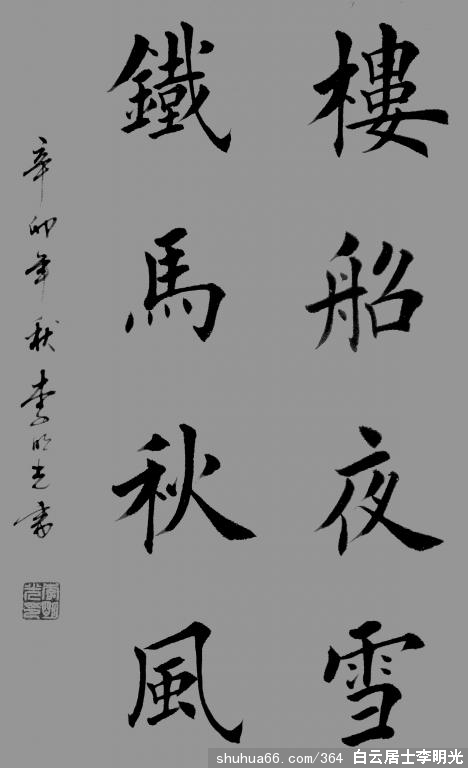 樓船夜雪
鐵馬秋風
辛卯年秋李明光書
shuhua66.com/364 白云居士李明光